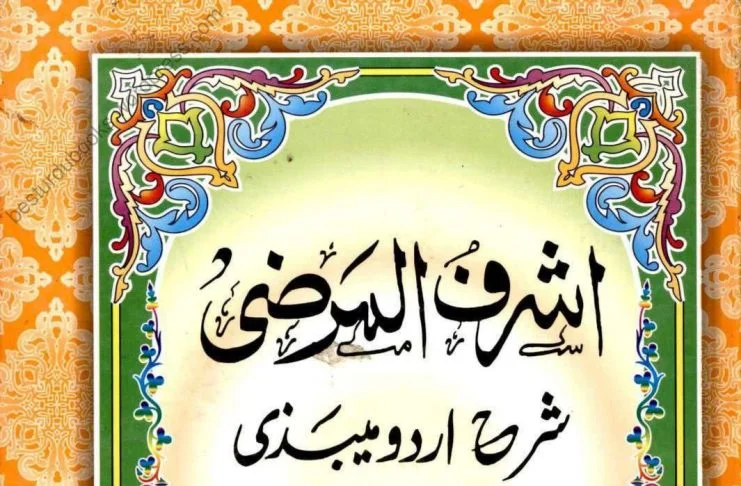 besturdubooks.wordpress.com
اشرف المرضی
شرح اردو میبذی